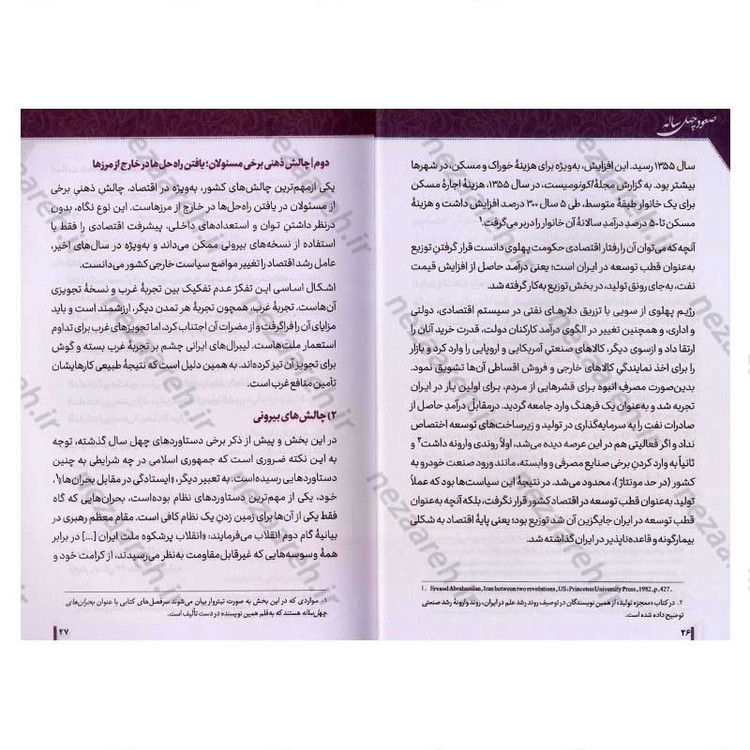 صعود چهل ساله
سال ۱۳۵۵ رسید. این افزایش، به‌ویژه برای هزینهٔ خوراک و مسکن، در شهرها
بیشتر بود. به گزارش مجلهٔ اکونومیست، در سال ۱۳۵۵، هزینهٔ اجارهٔ مسکن
برای یک خانوار طبقهٔ متوسط، طی ۵ سال ۳۰۰ درصد افزایش داشت و هزینهٔ
مسکن تا ۵۰ درصدِ درآمدِ سالانهٔ آن خانوار را دربر می‌گرفت.۱
آنچه که می‌توان آن را رفتار اقتصادی حکومت پهلوی دانست قرار گرفتنِ توزیع
به‌عنوان قطب توسعه در ایران است؛ یعنی درآمد حاصل از افزایش قیمت
نفت، به‌جای رونق تولید، در بخش توزیع به‌کار گرفته شد.
رژیم پهلوی از سویی با تزریق دلارهای نفتی در سیستم اقتصادی، دولتی
و اداری، و همچنین تغییر در الگوی درآمد کارکنان دولت، قدرت خرید آنان را
ارتقا داد و ازسوی دیگر، کالاهای صنعتی آمریکایی و اروپایی را وارد کرد و بازار
را برای اخذ نمایندگیِ کالاهای خارجی و فروش اقساطی آن‌ها تشویق نمود.
بدین‌صورت مصرفِ انبوه برای قشرهایی از مردم، برای اولین بار در ایران
تجربه شد و به‌عنوان یک فرهنگ وارد جامعه گردید. درمقابل درآمدِ حاصل از
صادرات نفت را به سرمایه‌گذاری در تولید و زیرساخت‌های توسعه اختصاص
نداد و اگر فعالیتی هم در این عرصه دیده می‌شد، اولاً روندی وارونه داشت۲ و
ثانیاً به وارد کردنِ برخی صنایع مصرفی و وابسته، مانند ورود صنعت خودرو به
کشور (در حد مونتاژ)، محدود می‌شد. در نتیجهٔ این سیاست‌ها بود که عملاً
تولید به‌عنوان قطب توسعه در اقتصاد کشور قرار نگرفت، بلکه آنچه به‌عنوان
قطب توسعه در ایران جایگزین آن شد توزیع بود؛ یعنی پایهٔ اقتصاد به شکلی
بیمارگونه و قاعده‌ناپذیر در ایران گذاشته شد.
1. Ervand Abrahamian, Iran between two revolutions, US: Princeton University Press, 1982, p. 427.
۲. در کتاب «معجزه تولید» از همین نویسندگان در توصیف روند رشد علم در ایران، روند وارونه رشد صنعتی
توضیح داده شده است.
۲۶
دوم | چالش ذهنی برخی مسئولان؛ یافتن راه‌حل‌ها در خارج از مرزها
یکی ازمهم‌ترین چالش‌های کشور، به‌ویژه در اقتصاد، چالشِ ذهنیِ برخی
از مسئولان در یافتن راه‌حل‌ها در خارج از مرزهاست. این نوع نگاه، بدون
درنظر داشتنِ توان و استعدادهای داخلی، پیشرفت اقتصادی را فقط با
استفاده از نسخه‌های بیرونی ممکن می‌داند و به‌ویژه در سال‌های اخیر،
عامل رشد اقتصاد را تغییر مواضع سیاست خارجی کشور می‌دانست.
اشکال اساسی این تفکّر عدم تفکیک بین تجربهٔ غرب و نسخهٔ تجویزی
آن‌هاست. تجربهٔ غرب، همچون تجربهٔ هر تمدن دیگر، ارزشمند است و باید
مزایای آن را فراگرفت و از مضرات آن اجتناب کرد، اما تجویزهای غرب برای تداوم
استعمار ملت‌هاست. لیبرال‌های ایرانی چشم بر تجربهٔ غرب بسته و گوش
برای تجویز آن تیز کرده‌اند. به همین دلیل است که نتیجهٔ طبیعی کارهایشان
تأمین منافع غرب است.
۲) چالش‌های بیرونی
در این بخش و پیش از ذکر برخی دستاوردهای چهل سال گذشته، توجه
به این نکته ضروری است که جمهوری اسلامی در چه شرایطی به چنین
دستاوردهایی رسیده است. به تعبیر دیگر، «ایستادگی در مقابل بحران‌ها»۱،
خود، یکی از مهم‌ترین دستاوردهای نظام بوده‌است، بحران‌هایی که گاه
فقط یکی از آن‌ها برای زمین زدنِ یک نظام کافی است. مقام معظم رهبری در
بیانیهٔ گام دوم انقلاب می‌فرمایند: «انقلاب پرشکوه ملت ایران [...] در برابر
همهٔ وسوسه‌هایی که غیرقابل‌مقاومت به‌نظر می‌رسیدند، از کرامت خود و
۱. مواردی که در این بخش به صورت تیتروار بیان می‌شوند سرفصل‌های کتابی با عنوان بحران‌های
چهل‌ساله هستند که به‌قلم همین نویسنده در دست تألیف است.
۲۷
nezaareh.ir